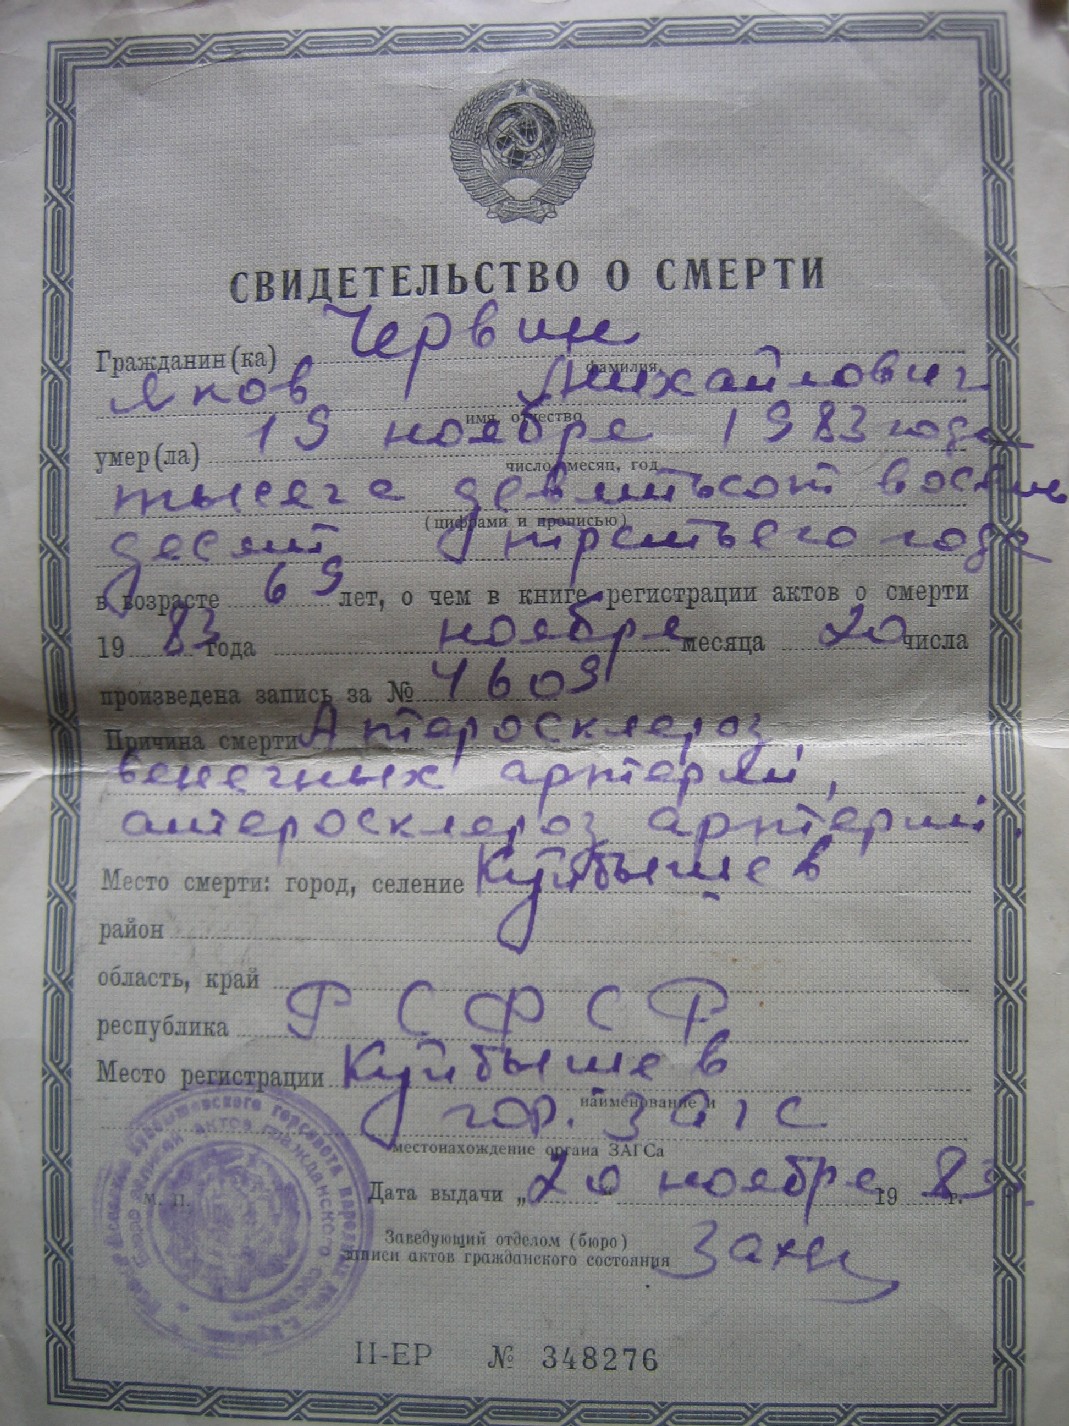 СВИДЕТЕЛЬСТВО О СМЕРТИ
Гражданин(ка) Червиц
фамилия
Яков Михайлович
имя, отчество
умер(ла) 19 ноября 1983 года
число, месяц, год
тысяча девятьсот восемь
(цифрами и прописью)
десят третьего года
в возрасте 69 лет, о чем в книге регистрации актов о смерти
1983 года ноября месяца 20 числа
произведена запись за № 4609
Причина смерти Атеросклероз
венечных артерий,
атеросклероз артерий.
Место смерти: город, селение Куйбышев
район
область, край
республика РСФСР
Место регистрации Куйбышев
наименование и
гор. загс
местонахождение органа ЗАГСа
М. П.
Дата выдачи „20“ ноября 1983 г.
Заведующий отделом (бюро)
записи актов гражданского состояния
II-ЕР № 348276